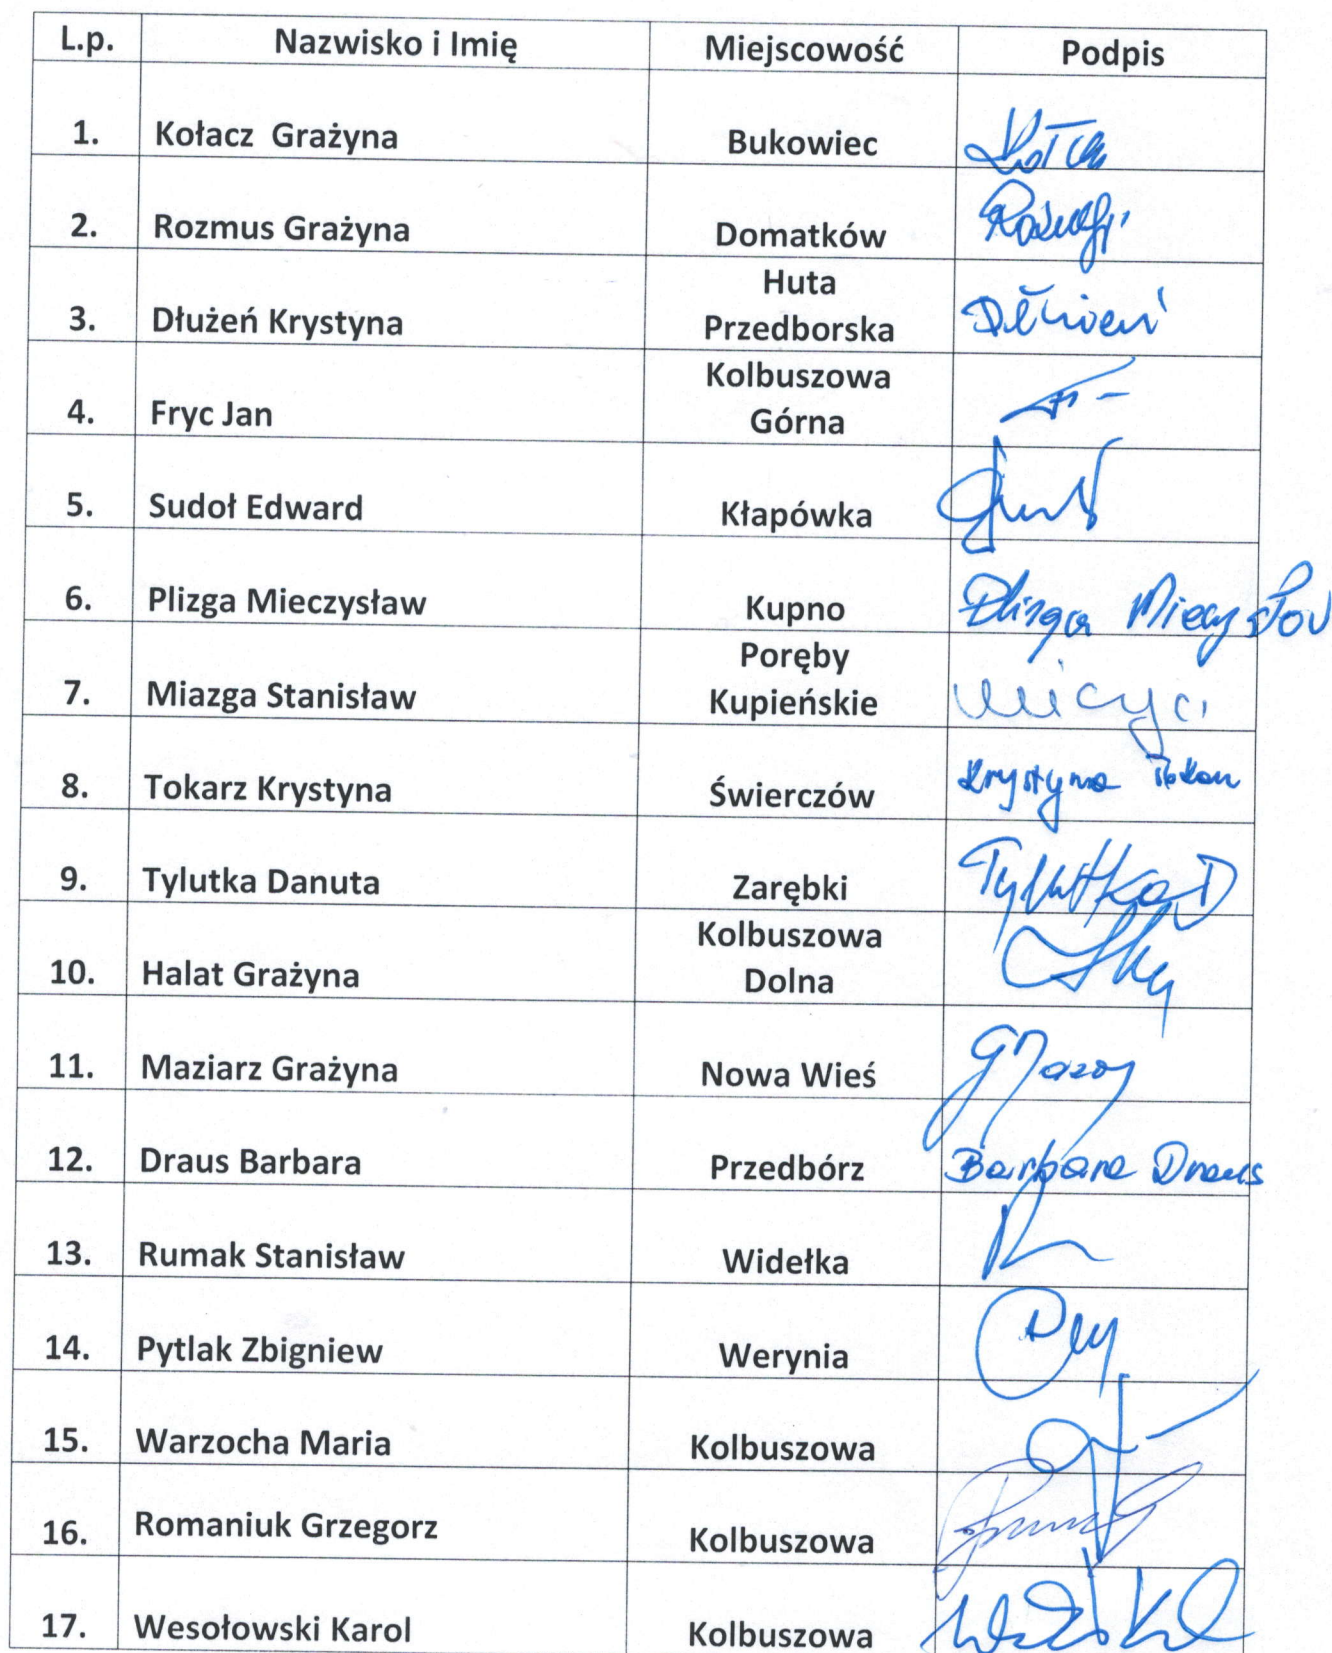 L.p. Nazwisko i Imię Miejscowość Podpis
1. Kołacz Grażyna Bukowiec
2. Rozmus Grażyna Domatków
3. Dłużeń Krystyna Huta
Przedborska Dłużeń
4. Fryc Jan Kolbuszowa
Górna
5. Sudoł Edward Kłapówka
6. Plizga Mieczysław Kupno Plizga
7. Miazga Stanisław Poręby
Kupieńskie
8. Tokarz Krystyna Świerczów Krystyna
9. Tylutka Danuta Zarębki Tylutka D
10. Halat Grażyna Kolbuszowa
Dolna
11. Maziarz Grażyna Nowa Wieś
12. Draus Barbara Przedbórz Barbara Draus
13. Rumak Stanisław Widełka
14. Pytlak Zbigniew Werynia
15. Warzocha Maria Kolbuszowa
16. Romaniuk Grzegorz Kolbuszowa
17. Wesołowski Karol Kolbuszowa